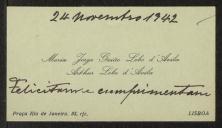 24 novembro 1942
Maria Jorge Guião Lobo d'Avila
Arthur Lobo d'Avila
Felicitam e cumprimentam
Praça Rio de Janeiro, 21, r/c. LISBOA